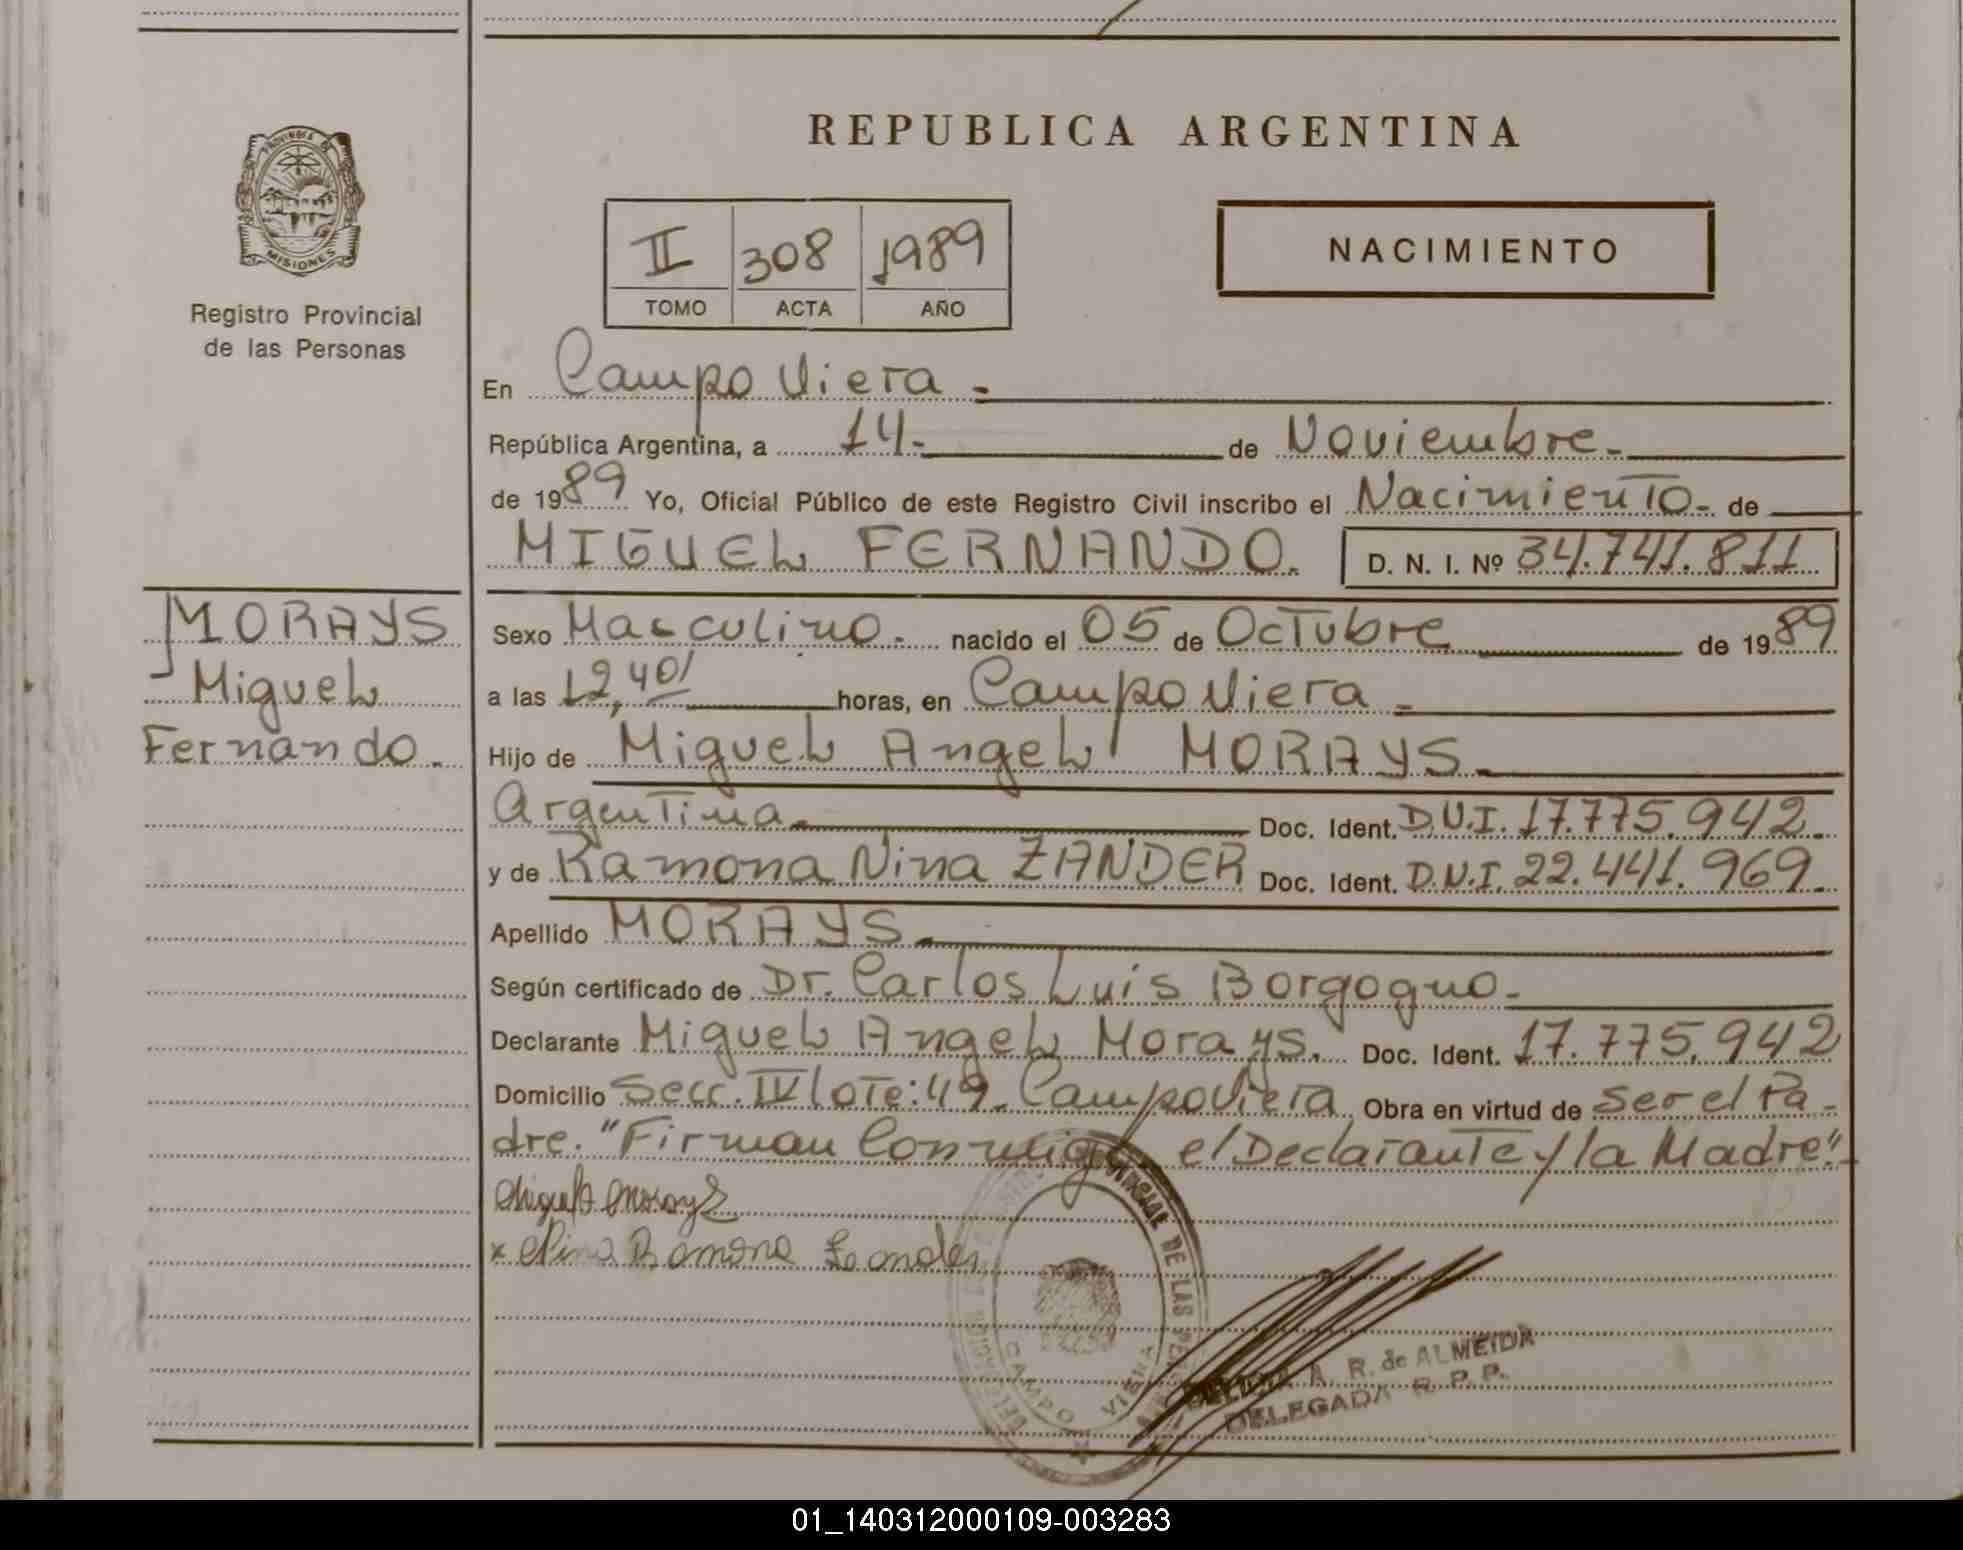 REPUBLICA ARGENTINA
PROVINCIA DE
MISIONES
Registro Provincial
de las Personas
II 308 1989
TOMO ACTA AÑO
NACIMIENTO
En Campo Viera.
República Argentina, a 14. de Noviembre.
de 1989 Yo, Oficial Público de este Registro Civil inscribo el Nacimiento. de
MIGUEL FERNANDO. D. N. I. Nº 34.741.811
MORAYS
Miguel
Fernando.
Sexo Masculino. nacido el 05 de Octubre de 1989
a las 12,40' horas, en Campo Viera.
Hijo de Miguel Angel MORAYS.
Argentina. Doc. Ident. D.N.I. 17.775.942.
y de Ramona Nina ZANDER Doc. Ident. D.N.I. 22.441.969.
Apellido MORAYS.
Según certificado de Dr. Carlos Luis Borgogno.
Declarante Miguel Angel Morays. Doc. Ident. 17.775.942
Domicilio Secc. IV lote: 49. Campo Viera Obra en virtud de ser el Pa-
dre. "Firman Conmigo el Declarante y la Madre".
Miguel A Morays
x Nina Ramona Zander
DE LAS
CAMPO VIERA
A. R. de ALMEIDA
DELEGADA R. P. P.
01_140312000109-003283